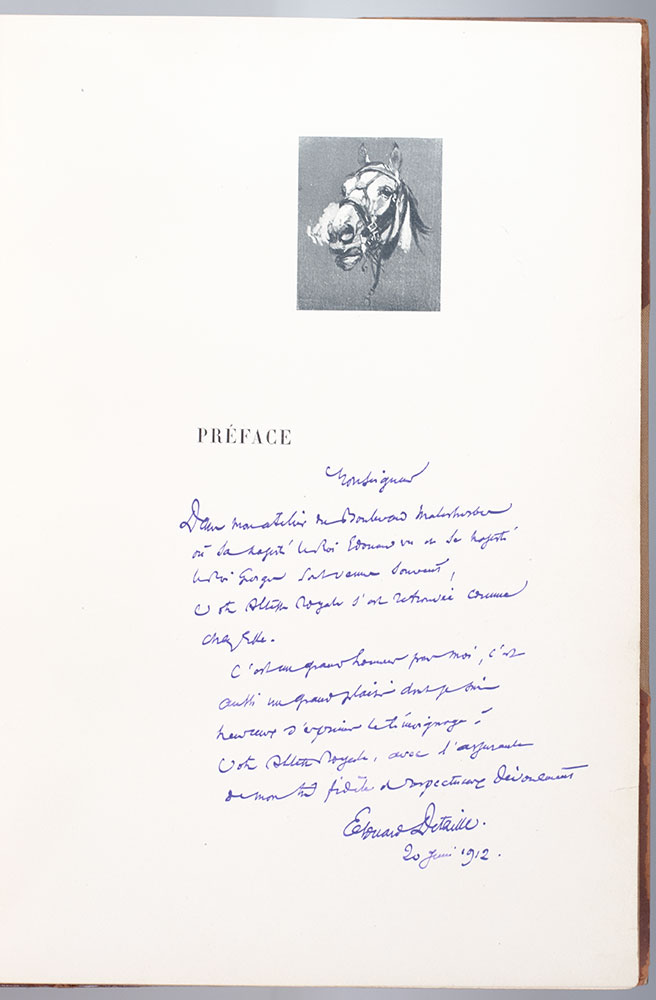 PRÉFACE
Monseigneur
Dans mon atelier du Boulevard Malesherbes
où Sa Majesté le Roi Edouard VII et Sa Majesté
le Roi George sont venus souvent,
Votre Altesse Royale s'est retrouvée comme
chez Elle.
C'est un grand honneur pour moi, c'est
aussi un grand plaisir dont je suis
heureux d'exprimer le témoignage à
Votre Altesse Royale, avec l'assurance
de mon très fidèle et respectueux dévouement
Edouard Detaille.
20 Juin 1912.